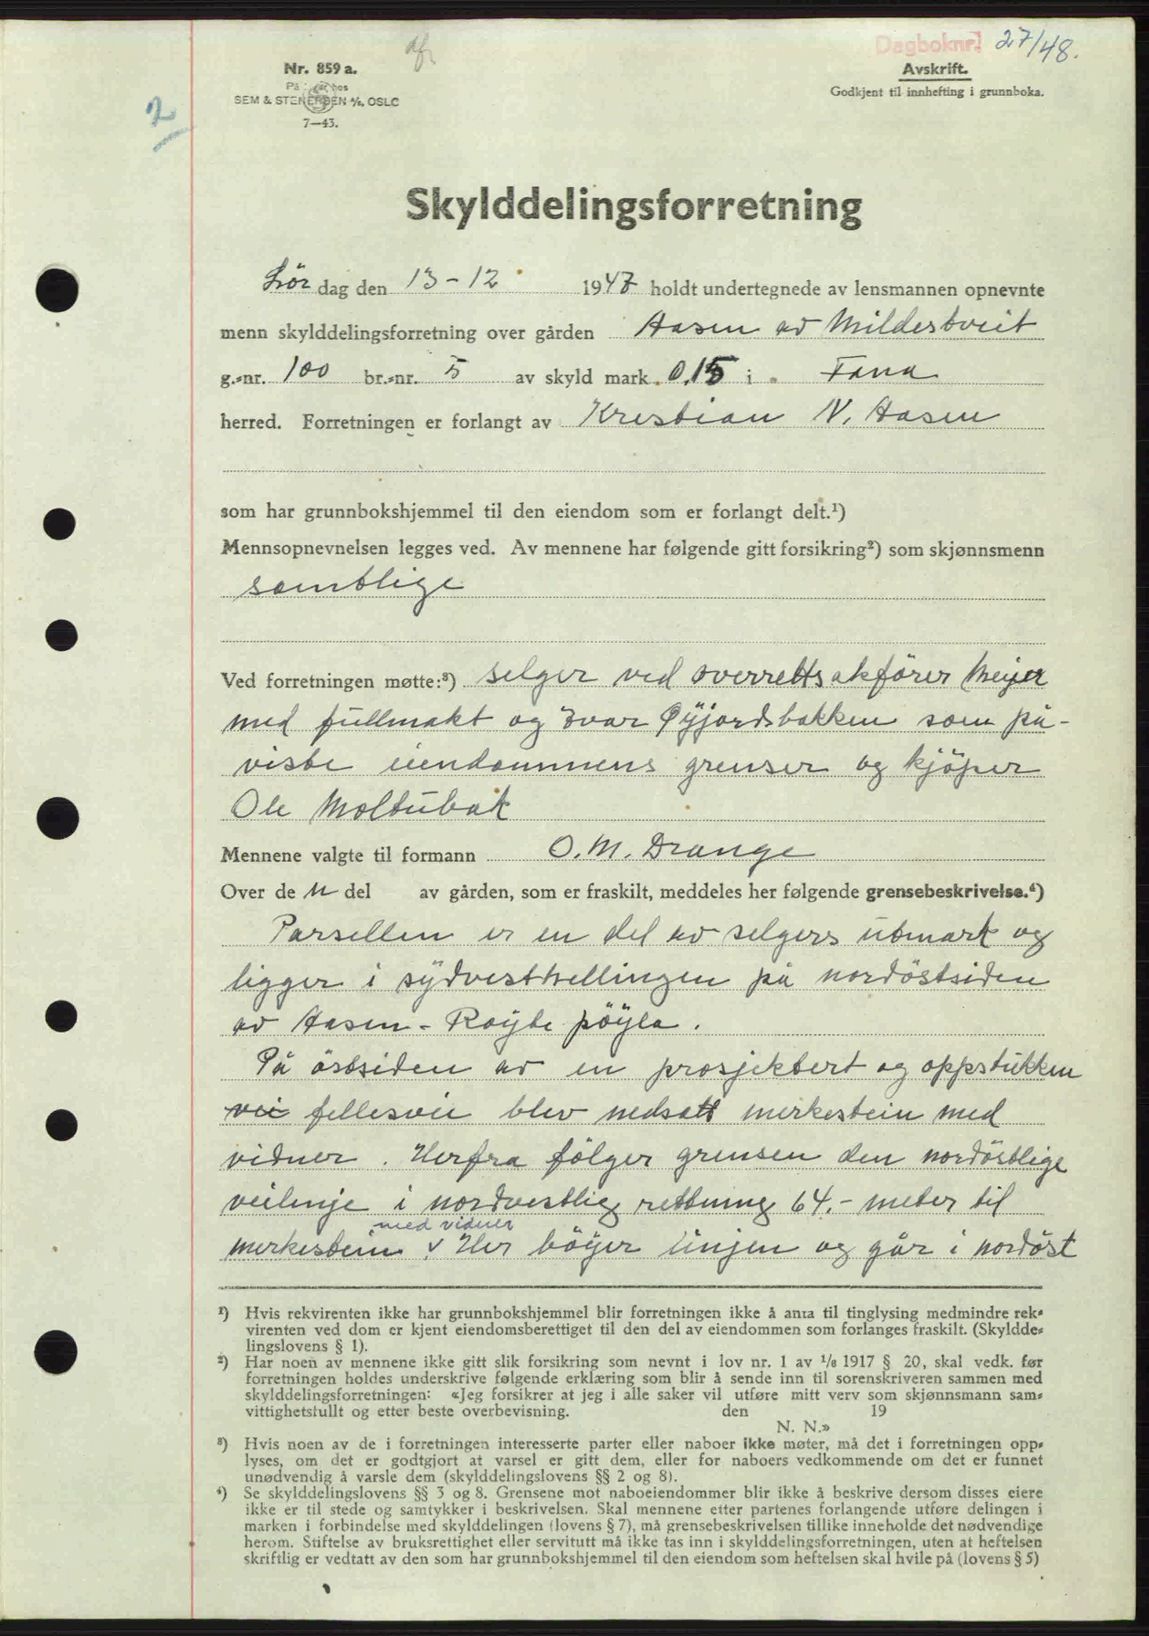 Dagboknr. 27/48.
Avskrift.
Godkjent til innhefting i grunnboka.
Nr. 859 a.
På hos
SEM & STENERSEN A/S, OSLO
7—43.
2
Skylddelingsforretning
Lör dag den 13-12 1947 holdt undertegnede av lensmannen opnevnte
menn skylddelingsforretning over gården Aasen av Mildestveit
g.-nr. 100 br.-nr. 5 av skyld mark 0.15 i Fana
herred. Forretningen er forlangt av Krestian N. Aasen
som har grunnbokshjemmel til den eiendom som er forlangt delt.¹)
Mennsopnevnelsen legges ved. Av mennene har følgende gitt forsikring²) som skjønnsmenn
samtlige
Ved forretningen møtte:³) selger ved overrettsakförer Meyer
med fullmakt og Ivar Øyjordsbakken som på-
viste eiendommens grenser og kjöper
Ole Moltubak
Mennene valgte til formann O. M. Drange
Over de n del av gården, som er fraskilt, meddeles her følgende grensebeskrivelse.⁴)
Parsellen er en del av selgers utmark og
ligger i sydvesthellingen på nordöstsiden
av Aasen - Röyte pöyla.
På östsiden av en prosjektert og oppstukken
vei fellesvei blev nedsatt merkestein med
vidner. Herfra fölger grensen den nordöstlige
veilinje i nordvestlig rettning 64.- meter til
med vidner
merkestein v Her böyer linjen og går i nordöst
¹) Hvis rekvirenten ikke har grunnbokshjemmel blir forretningen ikke å anta til tinglysing medmindre rek-
virenten ved dom er kjent eiendomsberettiget til den del av eiendommen som forlanges fraskilt. (Skyldde-
lingslovens § 1).
²) Har noen av mennene ikke gitt slik forsikring som nevnt i lov nr. 1 av 1/6 1917 § 20, skal vedk. før
forretningen holdes underskrive følgende erklæring som blir å sende inn til sorenskriveren sammen med
skylddelingsforretningen: «Jeg forsikrer at jeg i alle saker vil utføre mitt verv som skjønnsmann sam-
vittighetsfullt og etter beste overbevisning. den 19
N. N.»
³) Hvis noen av de i forretningen interesserte parter eller naboer ikke møter, må det i forretningen opp-
lyses, om det er godtgjort at varsel er gitt dem, eller for naboers vedkommende om det er funnet
unødvendig å varsle dem (skylddelingslovens §§ 2 og 8).
⁴) Se skylddelingslovens §§ 3 og 8. Grensene mot naboeiendommer blir ikke å beskrive dersom disses eiere
ikke er til stede og samtykker i beskrivelsen. Skal mennene etter partenes forlangende utføre delingen i
marken i forbindelse med skylddelingen (lovens § 7), må grensebeskrivelsen tillike inneholde det nødvendige
herom. Stiftelse av bruksrettighet eller servitutt må ikke tas inn i skylddelingsforretningen, uten at heftelsen
skriftlig er vedtatt av den som har grunnbokshjemmel til den eiendom som heftelsen skal hvile på (lovens § 5)